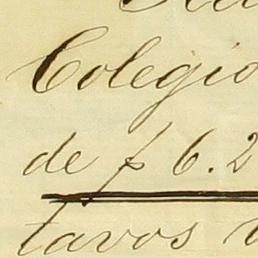 Colegio
de p 6.2
tavos